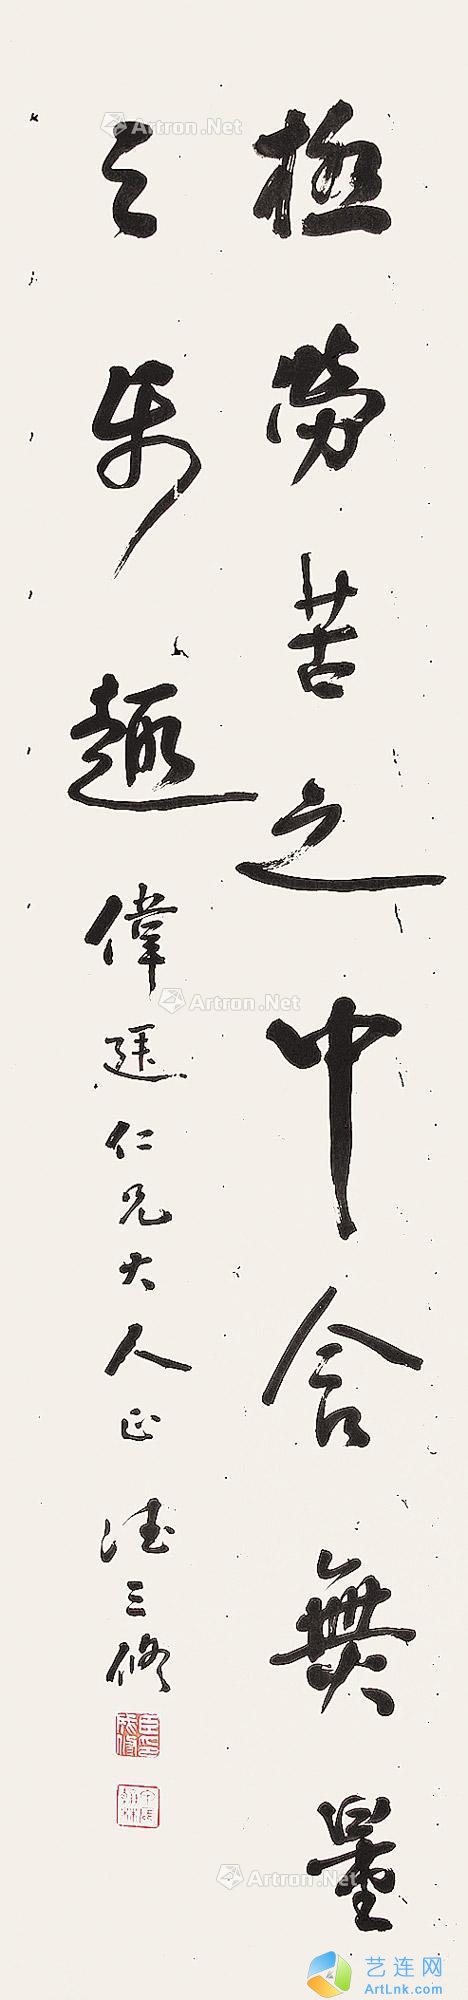 極勞苦之中含無量
之樂趣 偉廷仁兄大人正 三修
Artron.Net
Artron.Net
Artron.Net
艺连网
ArtLnk.com